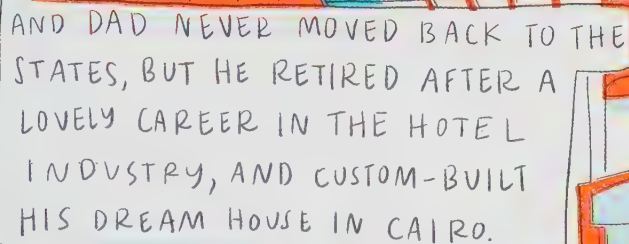 AND DAD NEVER MOVED BACK TO THE
STATES, BUT HE RETIRED AFTER A
LOVELY CAREER IN THE HOTEL
INDUSTRY, AND CUSTOM-BUILT
HIS DREAM HOUSE IN CAIRO.